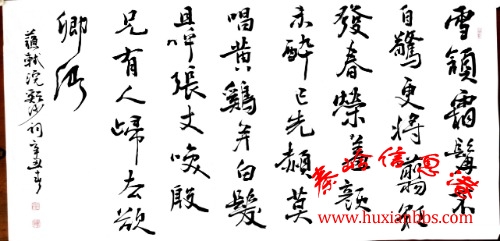 雪頷霜髯不
自驚更將翦綵
發春榮羞顏
未醉已先赬莫
唱黄鷄并白髮
且呼張丈喚殷
兄有人歸去欲
卿卿
蘇軾浣谿沙詞辛丑
www.huxianbbs.com